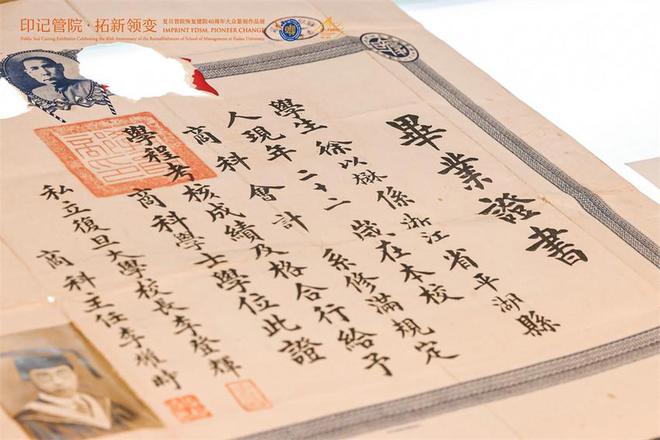 印记管院·拓新领变
复旦管院恢复建院40周年大众篆刻作品展
IMPRINT FDSM, PIONEER CHANGE
Public Seal Carving Exhibition Celebrating the 40th Anniversary of the Reestablishment of School of Management at Fudan University
畢業證書
學生徐以楙係浙江省平湖縣
人現年二十二歲在本校
商科會計系修滿規定
學程考核成績及格合行給予
商科學士學位此證
私立復旦大學校長李登輝
商科主任李權時